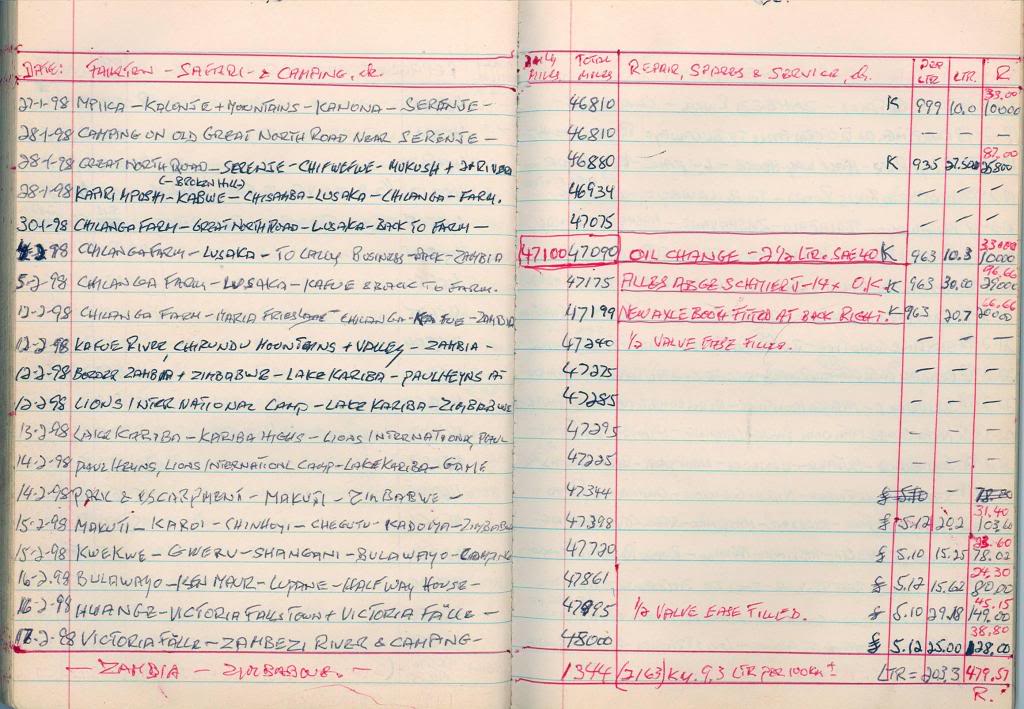 DATE: - SAFARI - & CAMPING, etc. DAILY MILES TOTAL MILES REPAIR, SPARES & SERVICE, etc. PER LTR LTR. R
27-1-98 MPIKA - KALONJE + MOUNTAINS - KANONA - SERENJE - 46810 K 999 10.0 33.00 10000
28-1-98 CAMPING ON OLD GREAT NORTH ROAD NEAR SERENJE - 46810 — — —
28-1-98 GREAT NORTH ROAD - SERENJE - CHIFWEFWE - MUKUSHI + RIVER 46880 K 935 27.50 87.00 25800
(- BROKEN HILL)
28-1-98 KAPIRI MPOSHI - KABWE - CHISAMBA - LUSAKA - CHILANGA - FARM. 46934 — — —
30-1-98 CHILANGA FARM - GREAT NORTH ROAD - LUSAKA - BACK TO FARM - 47075 — — —
4-2-98 CHILANGA FARM - LUSAKA - TO BUSINESS - BACK - ZAMBIA 47100 47090 OIL CHANGE - 2 1/2 LTR. SAE 40 K 963 10.3 10000
5-2-98 CHILANGA FARM - LUSAKA - KAFUE & BACK TO FARM. 47175 ALLES ABGESCHMIERT - 14x O.K. K 963 30.00 96.66 29000
12-2-98 CHILANGA FARM - MARIA CHILANGA - KAFUE - ZAMBIA 47199 NEW AXLE BOOTH FITTED AT BACK RIGHT. K 963 20.7 66.66 20000
12-2-98 KAFUE RIVER, CHIRUNDU MOUNTAINS + VALLEY - ZAMBIA - 47240 1/2 VALVE EASE FILLED. — — —
12-2-98 BORDER ZAMBIA + ZIMBABWE - LAKE KARIBA - PAUL HEYNS AT 47275 — — —
12-2-98 LIONS INTERNATIONAL CAMP - LAKE KARIBA - ZIMBABWE 47285 — — —
13-2-98 LAKE KARIBA - KARIBA HIGHS - LIONS INTERNATIONAL, PAUL 47295 — — —
14-2-98 PAUL HEYNS, LIONS INTERNATIONL CAMP - LAKE KARIBA - GAME 47225 — — —
14-2-98 PARK & ESCARPMENT - MAKUTI - ZIMBABWE - 47344 —
15-2-98 MAKUTI - KAROI - CHINHOYI - CHEGUTU - KADOMA - ZIMBABWE 47398 $ 5.12 20.2 31.40 103.40
15-2-98 KWEKWE - GWERU - SHANGANI - BULAWAYO - CAMPING 47720 $ 5.10 15.25 23.60 78.02
16-2-98 BULAWAYO - KEN MAUR - LUPANE - HALFWAY HOUSE - 47861 $ 5.12 15.62 24.30 80.00
16-2-98 HWANGE - VICTORIA FALLS TOWN + VICTORIA FÄLLE - 47995 1/2 VALVE EASE FILLED. $ 5.10 29.18 45.15 149.00
17-2-98 VICTORIA FÄLLE - ZAMBEZI RIVER & CAMPING - 48000 $ 5.12 25.00 38.80 128.00
- ZAMBIA - ZIMBABWE. - 1344 (2163) KM. 9.3 LTR PER 100 KM ± LTR = 203.3 479.57
R.